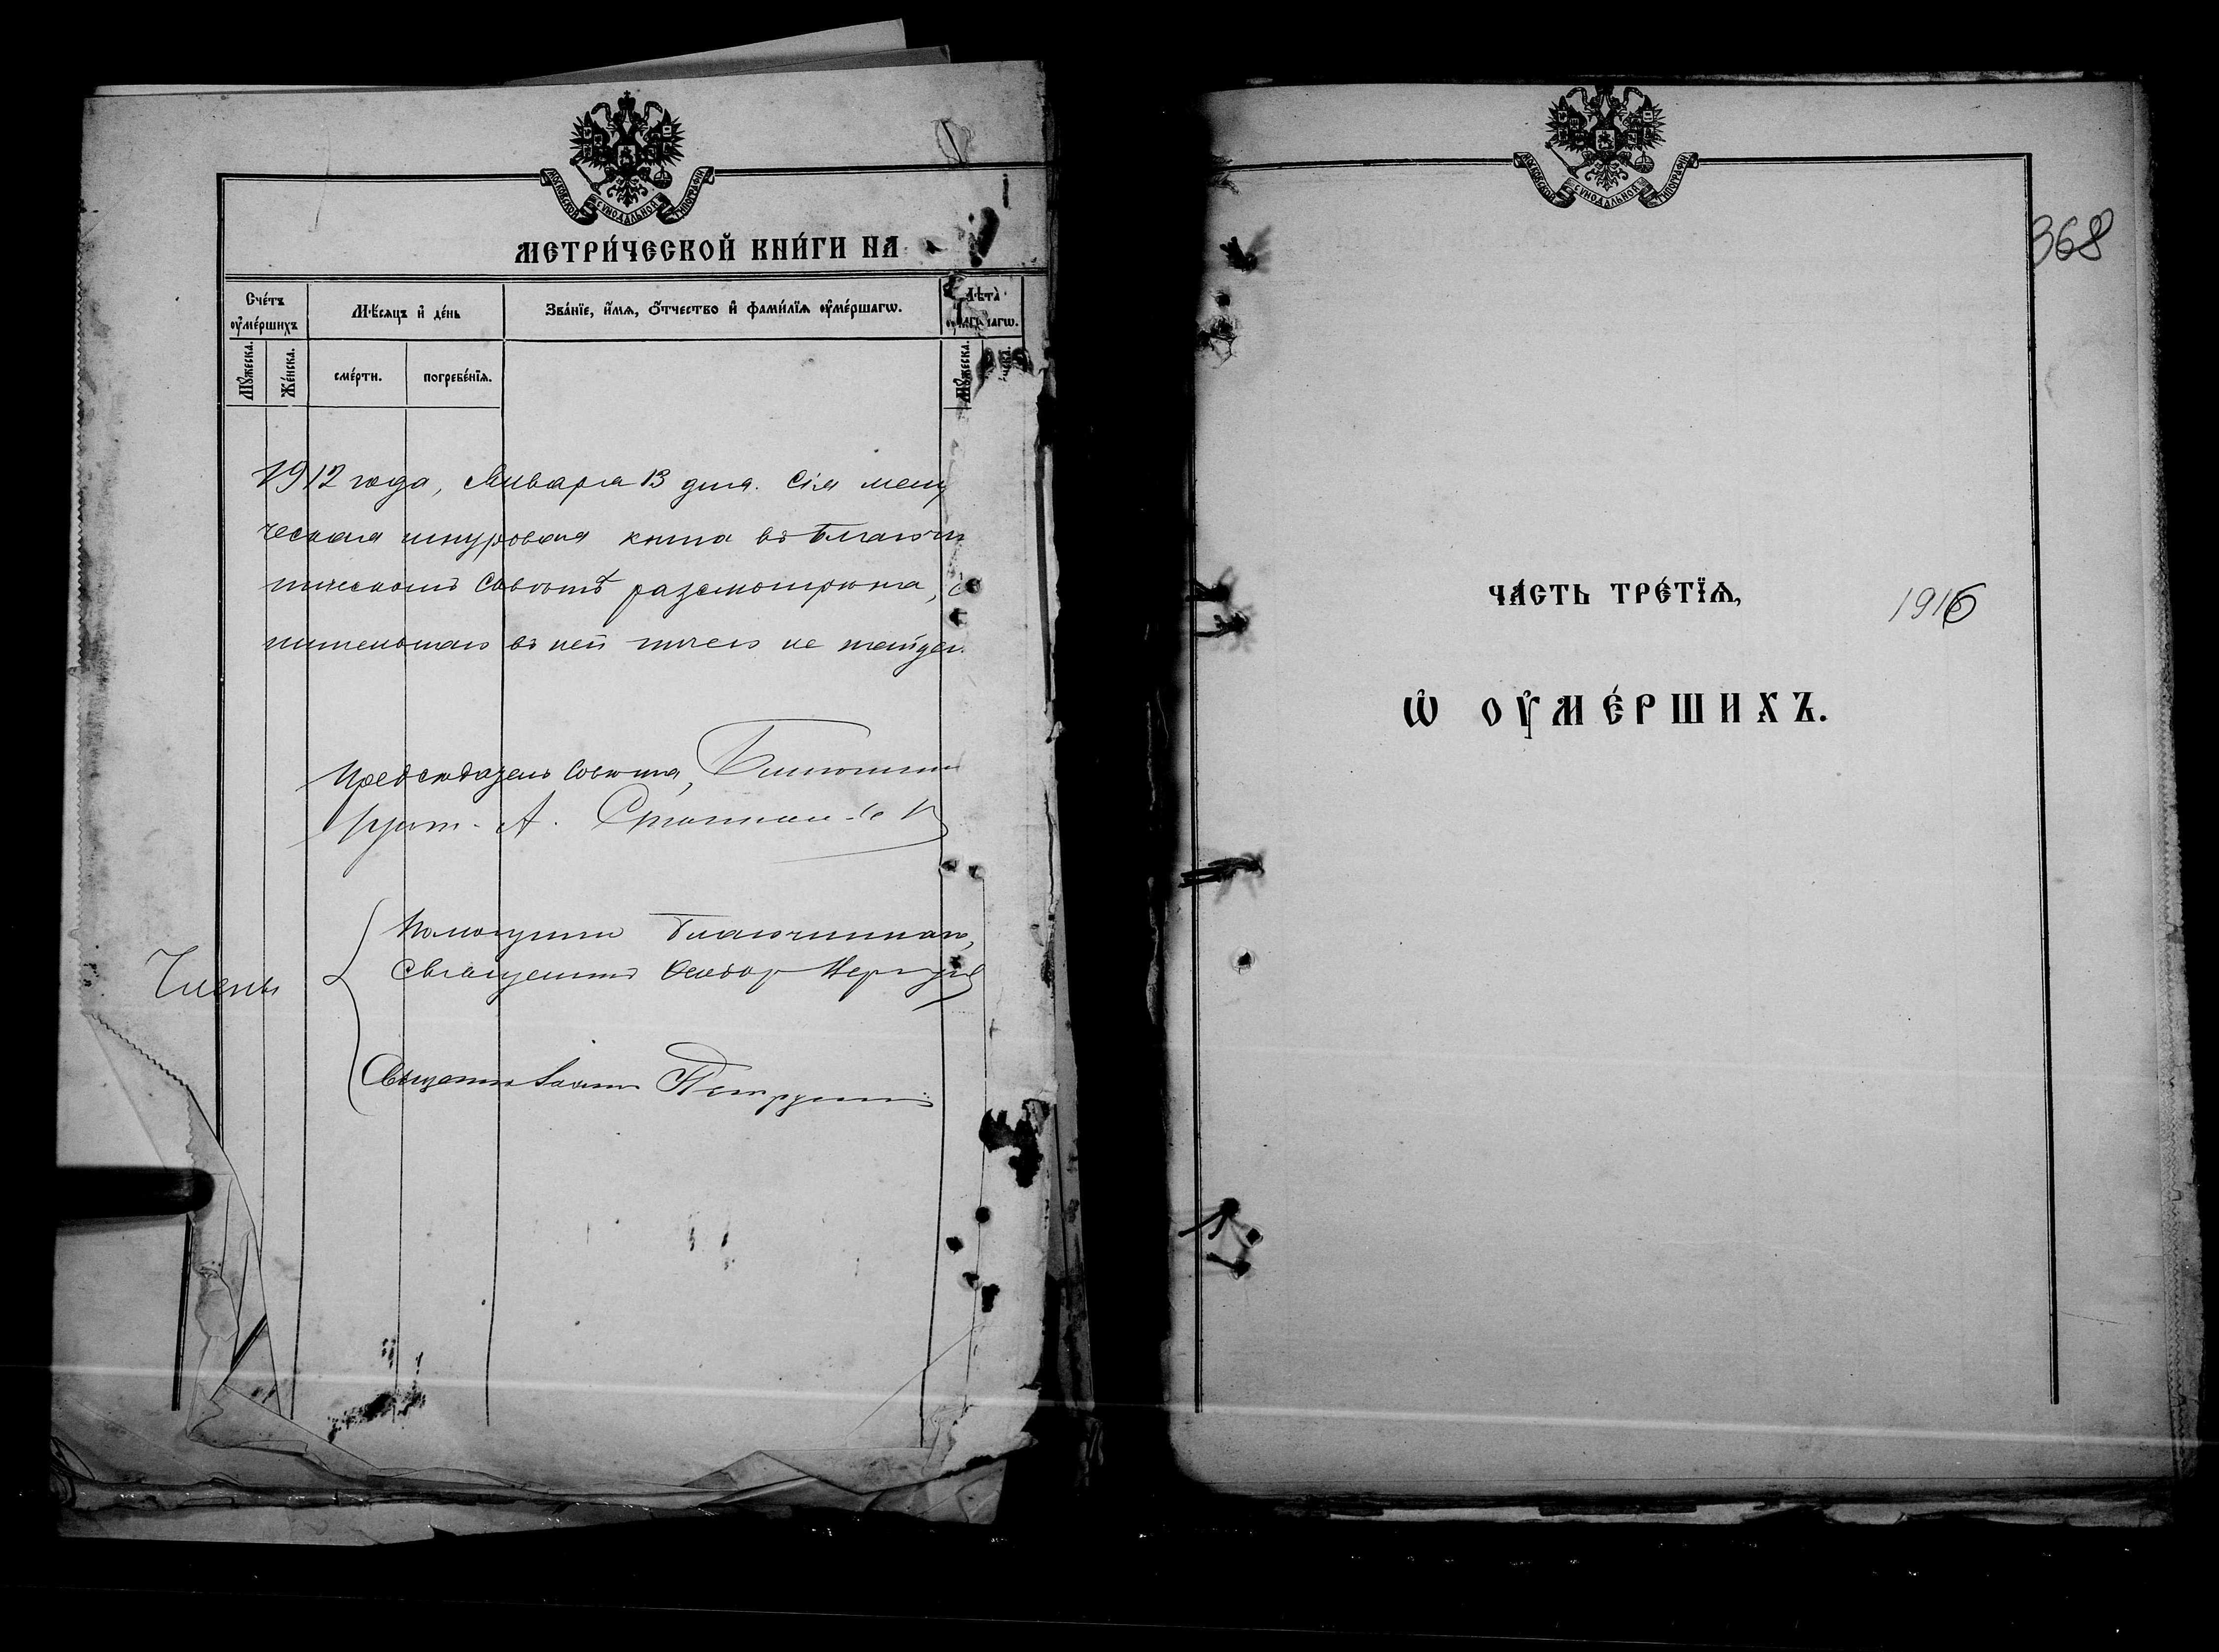 МОСКОВСКОЙ СѴНОДАЛЬНОЙ ТИПОГРАФІИ
МЕТРИ́ЧЕСКОЙ КНИ́ГИ НА
Сче́тъ ᲂу҆ме́ршихъ
Мѣ́сяцъ и҆ де́нь
Зва́нїе, и҆́мѧ, ѻ҆́тчество и҆ фами́лїѧ ᲂу҆ме́ршагѡ.
Лѣта̀
Мꙋ́жеска.
Же́нска.
сме́рти.
погребе́нїѧ.
Мꙋ́жеска.
1912 года, Января 13 дня. Сія метри
ческая шнуровая книга въ Благочи
нническомъ Совѣтѣ разсмотрѣна, с
нительнаго въ ней ничего не найден
Предсѣдатель Совѣта, Благочинный
прот. А.
Члены
Помощникъ Благочиннаго,
Священникъ Ѳеодоръ
Священникъ Іоаннъ
МОСКОВСКОЙ СѴНОДАЛЬНОЙ ТИПОГРАФІИ
368
ЧА́СТЬ ТРЕ́ТЇѦ,
1916
Ѡ҆ ОУ҆МЕ́РШИХЪ.